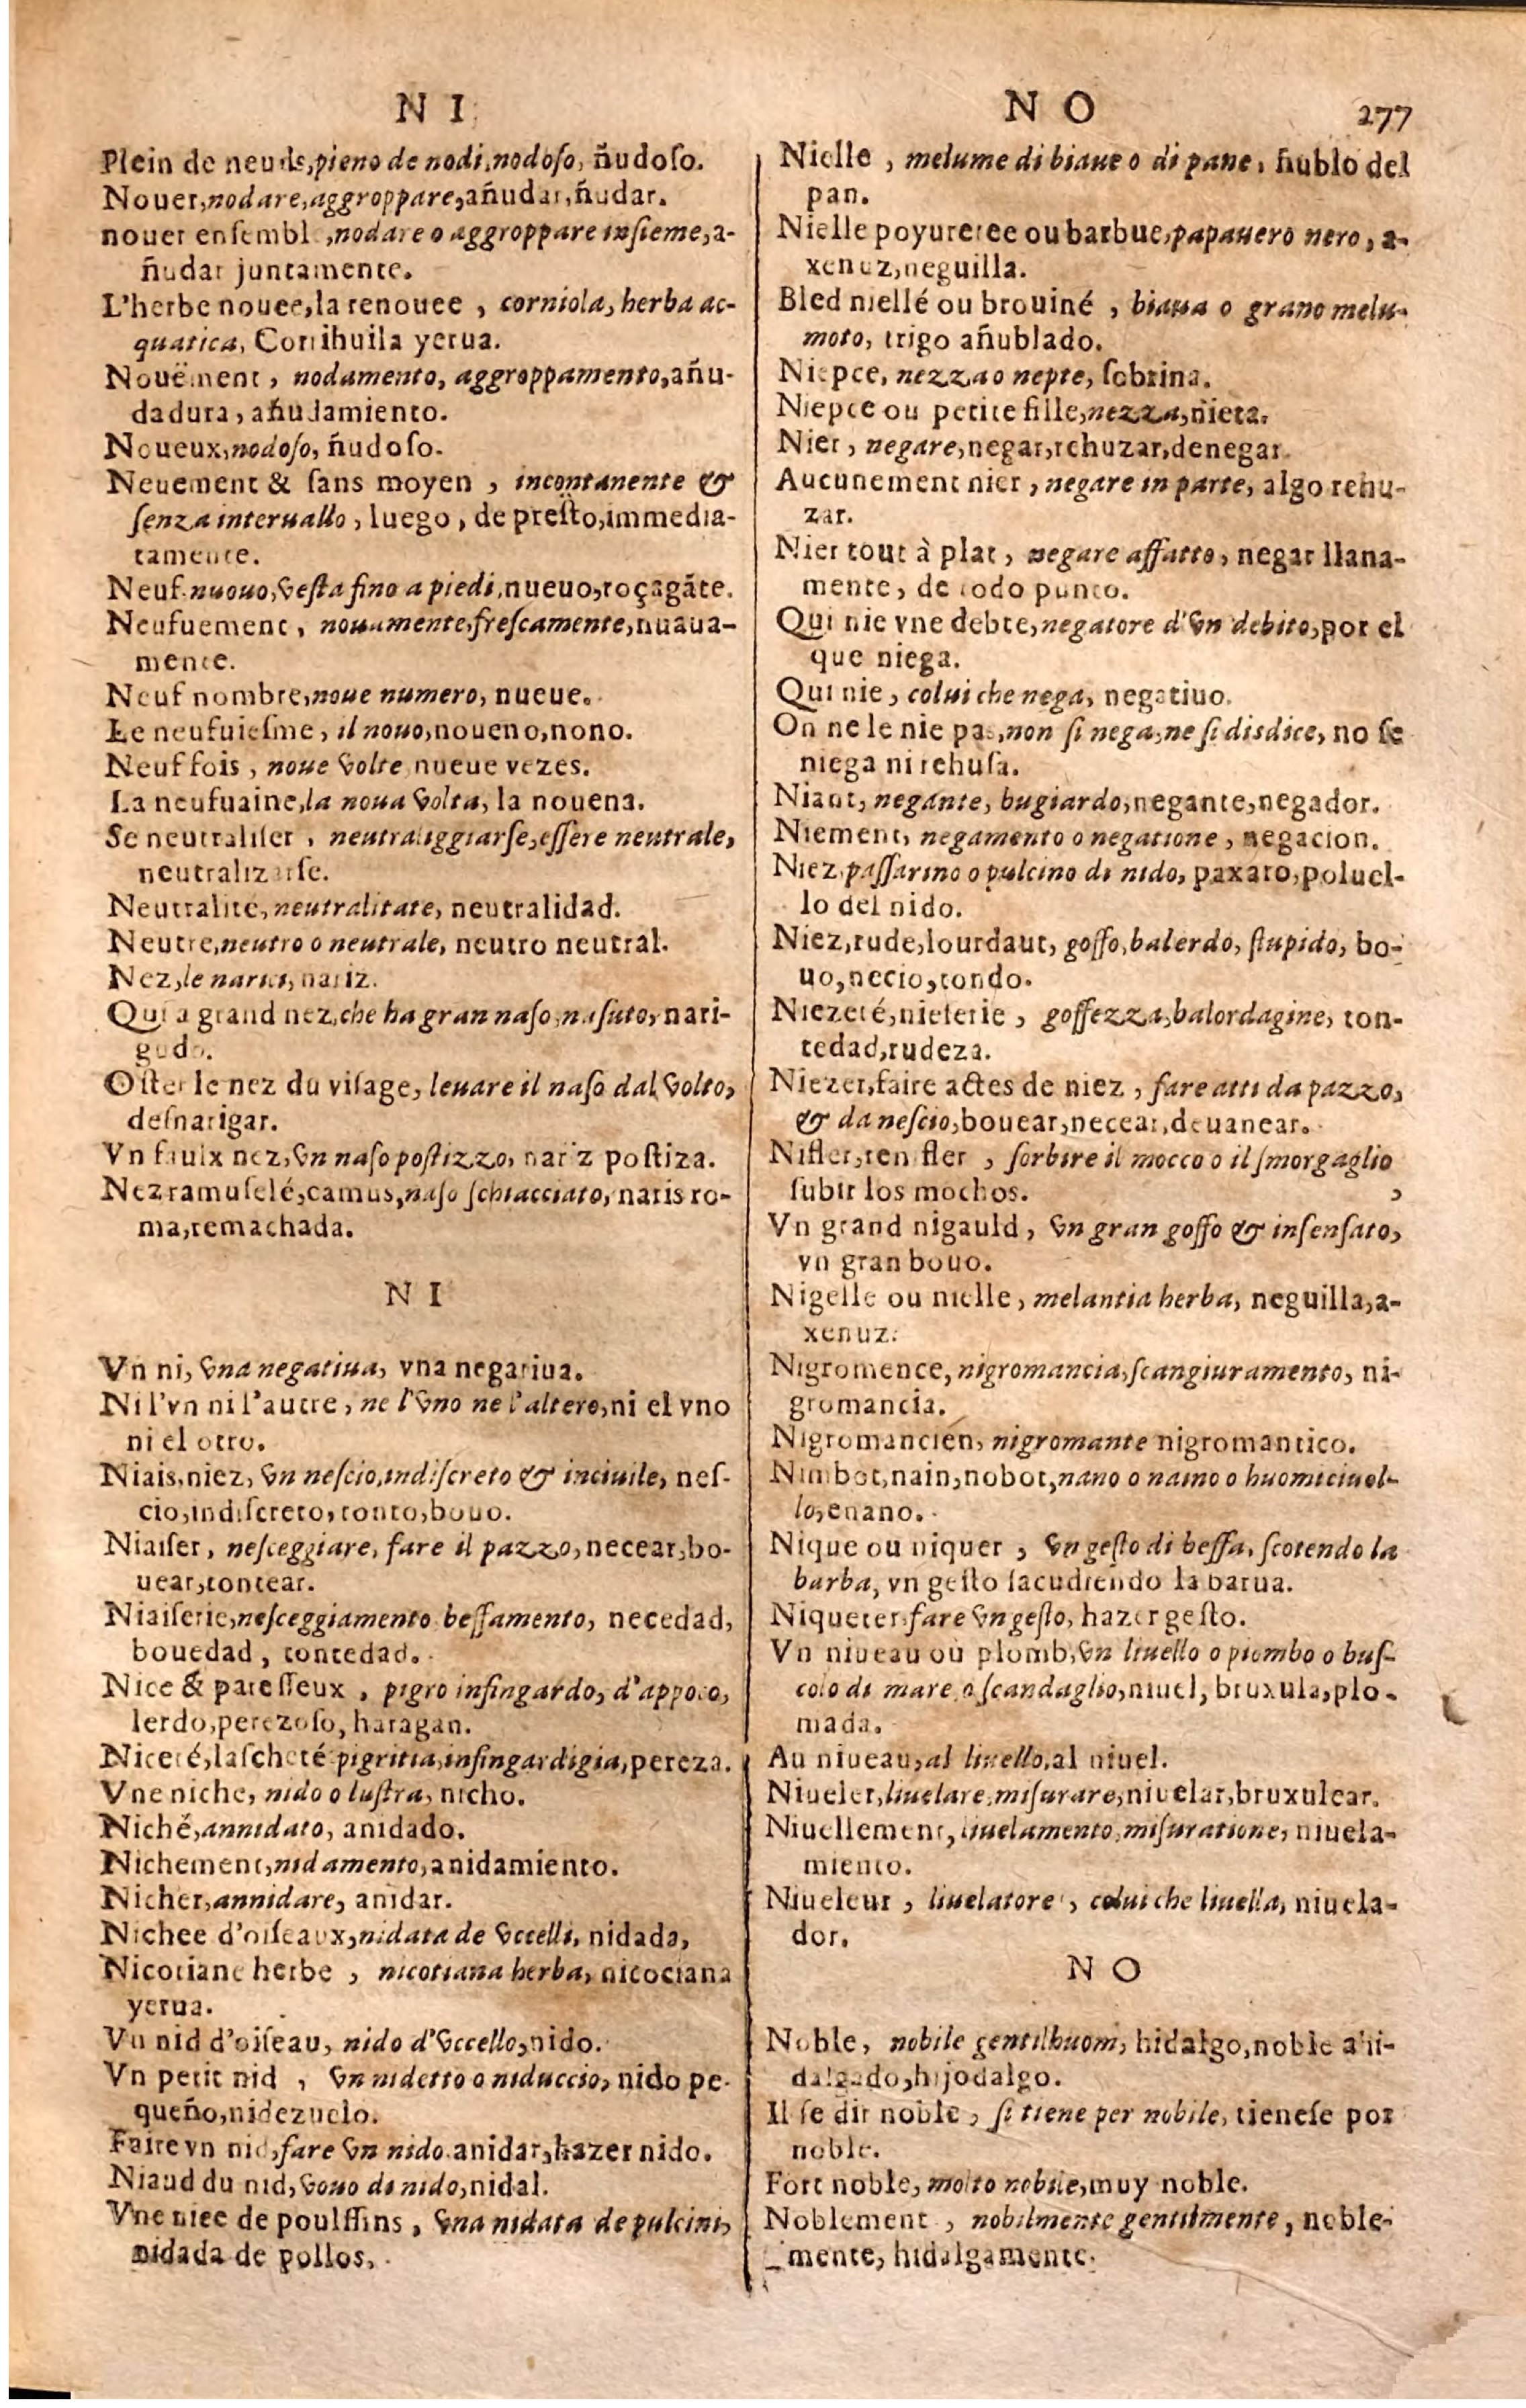 N I
Plein de neuds, pieno de nodi, nodoſo, ñudoſo.
Nouer, nodare, aggroppare, añudar, ñudar.
nouer enſembl, nodare o aggroppare inſieme, a-
ñudar juntamente.
L'herbe nouee, la renouee, corniola, herba ac-
quatica, Corrihuila yerua.
Nouëment, nodamento, aggroppamento, añu-
dadura, añudamiento.
Noueux, nodoſo, ñudoſo.
Neuement & ſans moyen, incontanente &
ſenza interuallo, luego, de preſto, immedia-
tamente.
Neuf. nuouo, veſta fino a piedi, nueuo, roçagãte.
Neufuement, nouamente, freſcamente, nuaua-
mente.
Neuf nombre, noue numero, nueue.
Le neufuieſme, il nouo, noueno, nono.
Neuf fois, noue volte nueue vezes.
La neufuaine, la noua volta, la nouena.
Se neutraliſer, neutraliggiarſe, eſſere neutrale,
neutralizarſe.
Neutralité, neutralitate, neutralidad.
Neutre, neutro o neutrale, neutro neutral.
Nez, le narici, nariz.
Qui a grand nez, che ha gran naſo, naſuto, nari-
gudo.
Oſter le nez du viſage, leuare il naſo dal volto,
deſnarigar.
Vn faulx nez, vn naſo poſtizzo, nariz poſtiza.
Nez ramuſelé, camus, naſo ſchiacciato, naris ro-
ma, remachada.
N I
Vn ni, vna negatiua, vna negatiua.
Ni l'vn ni l'autre, ne l'vno ne l'altero, ni el vno
ni el otro.
Niais, niez, vn neſcio, indiſcreto & inciuile, neſ-
cio, indiſcreto, tonto, bouo.
Niaiſer, neſceggiare, fare il pazzo, necear, bo-
uear, tontear.
Niaiſerie, neſceggiamento beffamento, necedad,
bouedad, tontedad.
Nice & pareſſeux, pigro inſingardo, d'appoco,
lerdo, perezoſo, haragan.
Niceté, laſcheté pigritia, inſingardigia, pereza.
Vne niche, nido o luſtra, nicho.
Niché, annidato, anidado.
Nichement, nidamento, anidamiento.
Nicher, annidare, anidar.
Nichee d'oiſeaux, nidata de vccelli, nidada,
Nicotiane herbe, nicotiana herba, nicociana
yerua.
Vn nid d'oiſeau, nido d'vccello, nido.
Vn petit nid, vn nidetto o niduccio, nido pe-
queño, nidezuelo.
Faire vn nid, fare vn nido. anidar, hazer nido.
Niaud du nid, vouo di nido, nidal.
Vne niee de poulſſins, vna nidata de pulcini,
nidada de pollos.
N O 277
Nielle, melume di biaue o di pane, ñublo del
pan.
Nielle poyureree ou barbue, papauero nero, a-
xenuz, neguilla.
Bled niellé ou brouiné, biaua o grano melu-
moto, trigo añublado.
Niepce, nezza o nepte, ſobrina.
Niepce ou petite fille, nezza, nieta.
Nier, negare, negar, rehuzar, denegar.
Aucunement nier, negare in parte, algo rehu-
zar.
Nier tout à plat, negare affatto, negar llana-
mente, de todo punto.
Qui nie vne debte, negatore d'vn debito, por el
que niega.
Qui nie, colui che nega, negatiuo.
On ne le nie pas, non ſi nega, ne ſi disdice, no ſe
niega ni rehuſa.
Niant, negante, bugiardo, negante, negador.
Niement, negamento o negatione, negacion.
Niez, paſſarino o pulcino di nido, paxaro, poluel-
lo del nido.
Niez, rude, lourdaut, goffo, balerdo, ſtupido, bo-
uo, necio, tondo.
Niezeté, nieſerie, goffezza, balordagine, ton-
tedad, rudeza.
Niezer, faire actes de niez, fare atti da pazzo,
& da neſcio, bouear, necear, deuanear.
Nifler, renifler, ſorbire il mocco o il ſmorgaglio
ſubir los mochos. ,
Vn grand nigauld, vn gran goffo & inſenſato,
vn gran bouo.
Nigelle ou nielle, melantia herba, neguilla, a-
xenuz.
Nigromence, nigromancia, ſcangiuramento, ni-
gromancia.
Nigromancien, nigromante nigromantico.
Nimbot, nain, nobot, nano o naino o huomiciuol-
lo, enano.
Nique ou niquer, vn geſto di beffa, ſcotendo la
barba, vn geſto ſacudiendo la barua.
Niqueter, fare vn geſto, hazer geſto.
Vn niueau où plomb, vn liuello o piombo o buſ-
colo di mare o ſcandaglio, niuel, bruxula, plo-
mada.
Au niueau, al liuello, al niuel.
Niueler, liuelare, miſurare, niuelar, bruxulear.
Niuellement, liuelamento, miſuratione, niuela-
miento.
Niueleur, liuelatore, colui che liuella, niuela-
dor.
N O
Noble, nobile gentilhuom, hidalgo, noble ahi-
dalgado, hijodalgo.
Il ſe dit noble, ſi tiene per nobile, tieneſe por
noble.
Fort noble, molto nobile, muy noble.
Noblement, nobilmente gentilmente, noble-
mente, hidalgamente.